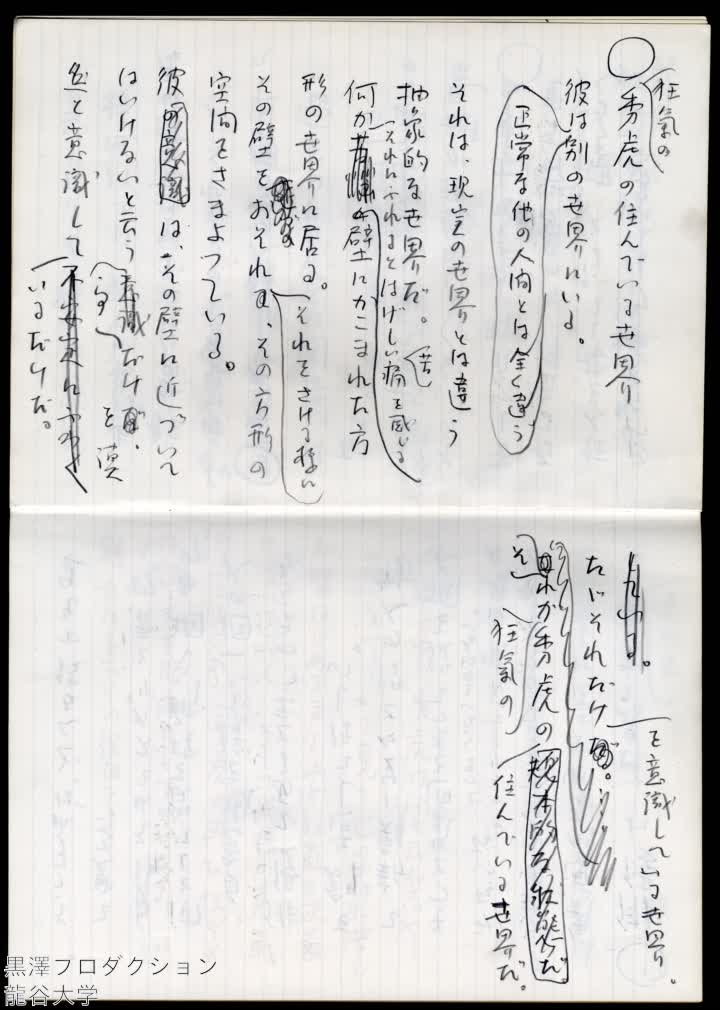 ○
狂氣の
秀虎の住んでいる世界
彼は別の世界にいる。
正常な他の人間とは全く違う
それは、現実の世界とは違う
抽象的な世界だ。
それにふれるとはげしい苦痛を感じる
何か壁にかこまれた方
形の世界に居る。
それをさける様に
その壁をおそれ、その方形の
空間をさまよっている。
彼は、その壁に近づいて
はいけないと云うだけを漠
然と意識して
いるだけだ。
たゞそれだけを意識している世界。
それが秀虎の
狂氣の
住んでいる世界だ。
黒澤プロダクション
龍谷大学